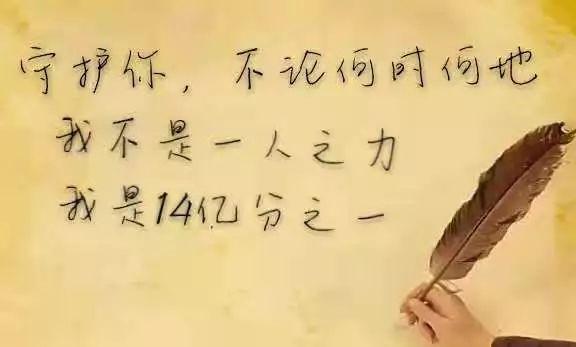 守护你，不论何时何地
我不是一人之力
我是14亿分之一